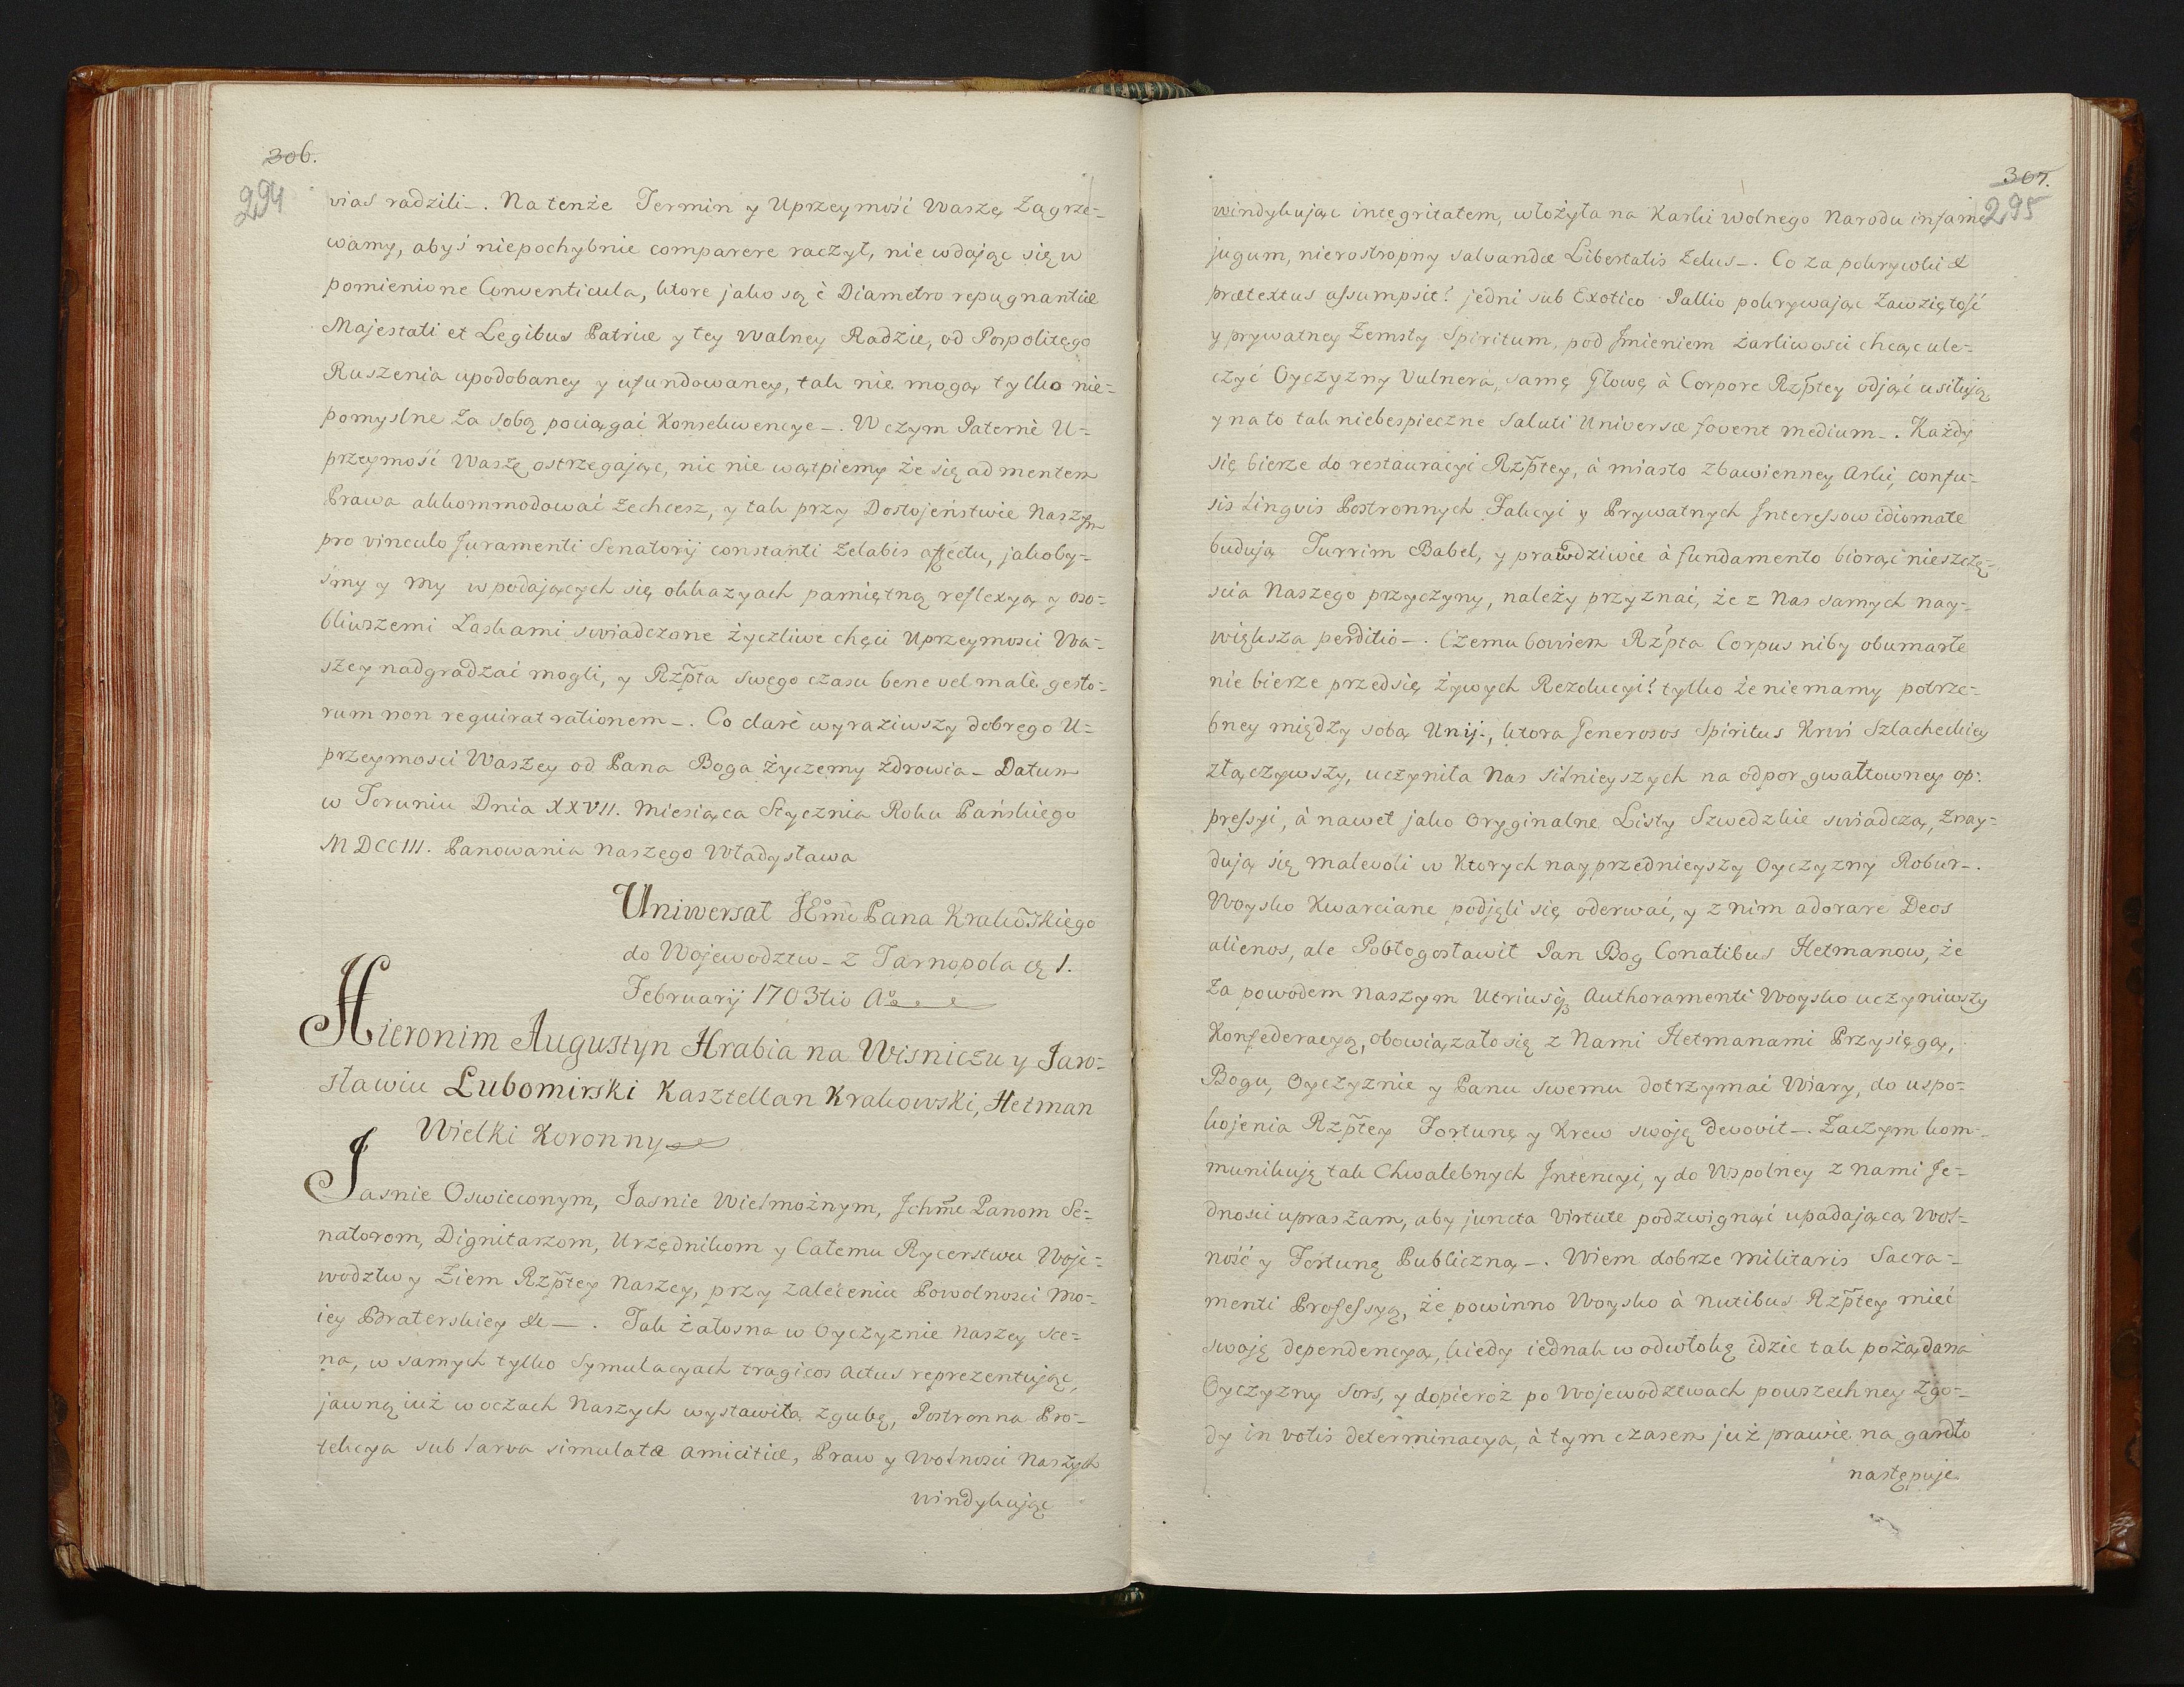 306.
294
vias radzili_. Na tenże Termin y Uprzeymość Waszę Zagrze=
wamy, abyś niepochybnie comparere raczył, nie wdając się w
pomienione Conventicula, ktore jako są è Diametro repugnantiæ
Majestati et Legibus Patriæ y tey Walney Radzie, od Pospolitego
Ruszenia upodobaney y ufundowaney, tak nie mogą tylko nie=
pomyslne Za sobą pociągać Konsekwencye_. W czym Paternè U=
przeymość Waszę ostrzegając, nic nie wątpiemy że się ad mentem
Prawa akkommodować Zechcesz, y tak przy Dostojeństwie Naszym
pro vinculo Juramenti Senatorij constanti Zelabis affectu, jakoby=
śmy y my w podających się okkazyach pamiętną reflexyą y oso=
bliwszemi Laskami swiadczone życzliwe chęci Uprzeymosci Wa=
szey nadgradzać mogli, y Rzpta swego czasu bene vel malè gesto=
rum non requirat rationem_. Co clarè wyraziwszy dobrego U=
przeymosci Waszey od Pana Boga życzemy zdrowia_ Datum
w Toruniu Dnia XXVII. Miesiąca Stycznia Roku Pańskiego
MDCCIII. Panowania Naszego Władysława
Uniwersał JEme Pana Krakowskiego
do Wojewodztw_ z Tarnopola 1.
Februarij 1703tio Ao
Hieronim Augustyn Hrabia na Wisniczu y Jaro=
sławiu Lubomirski Kasztellan Krakowski, Hetman
Wielki Koronny
Jasnie Oswieconym, Jasnie Wielmożnym, Ichme Panom Se=
natorom, Dignitarzom, Urzędnikom y Całemu Rycerstwu Woje=
wodztw y Ziem Rzptey Naszey, przy Zaleceniu Powolnosci Mo=
iey Braterskiey &_. Tak żałosna w Oyczyznie Naszey Sce=
na, w samych tylko Symulacyach tragicos actus reprezentując,
jawną iuż w oczach Naszych wystawiła zgubę, Postronna Pro=
tekcya sub larva simulatæ amicitiæ, Praw y Wolnosci Naszych
windykując
307.
295
windykując integritatem, włożyła na Karki wolnego Narodu infame
jugum, nierostropny salvandæ Libertatis Zelus_. Co za pokrywki &
prætextus assumpsit? jedni sub Exotico Pallio pokrywając Zawziętość
y prywatney Zemsty Spiritum, pod Imieniem żarliwosci chcąc ule=
czyć Oyczyzny Vulnera, samę Głowę à Corpore Rzptey odjąć usiłują,
y na to tak niebespieczne Saluti Universæ fovent medium_. Każdy
się bierze do restauracyi Rzptey, à miasto zbawienney Arki, confu=
sis Linguis Postronnych Fakcyi y Prywatnych Interessow idiomate
budują Turrim Babel, y prawdziwie à fundamento biorąc nieszczę=
scia Naszego przyczyny, należy przyznać, że z Nas samych nay=
większa perditio_. Czemu bowiem Rzpta Corpus niby obumarłe
nie bierze przedsię żywych Rezolucyi? tylko że niemamy potrze=
bney między sobą Unij_, ktora Generosos Spiritus Krwi Szlacheckiey
złączywszy, uczyniła Nas silnieyszych na odpor gwałtowney op=
pressyi, à nawet jako Oryginalne Listy Szwedzkie swiadczą, Znay=
dują się malevoli w Ktorych nayprzednieyszy Oyczyzny Robur_.
Woysko Kwarciane podjęli się oderwać, y z nim adorare Deos
alienos, ale Pobłogosławił Pan Bog Conatibus Hetmanow, że
Za powodem Naszym Utriusq Authoramenti Woysko uczyniwszy
Konfederacyą, obowiązało się z Nami Hetmanami Przysięgą,
Bogu, Oyczyznie y Panu swemu dotrzymać Wiary, do uspo=
kojenia Rzptey Fortunę y Krew swoję devovit_. Zaczym kom=
munikuję tak Chwalebnych Intencyi, y do Wspolney z Nami Je=
dnosci upraszam, aby juncta Virtute podzwignąć upadającą Wol=
ność y Fortunę Publiczną_. Wiem dobrze Militaris Sacra=
menti Professyą, że powinno Woysko à nutibus Rzptey mieć
swoję dependencyą, kiedy iednak w odwłokę idzie tak pożądana
Oyczyzny Sors, y dopieroż po Wojewodztwach powszechney Zgo=
dy in votis determinacya, à tym czasem już prawie na gardło
następuje